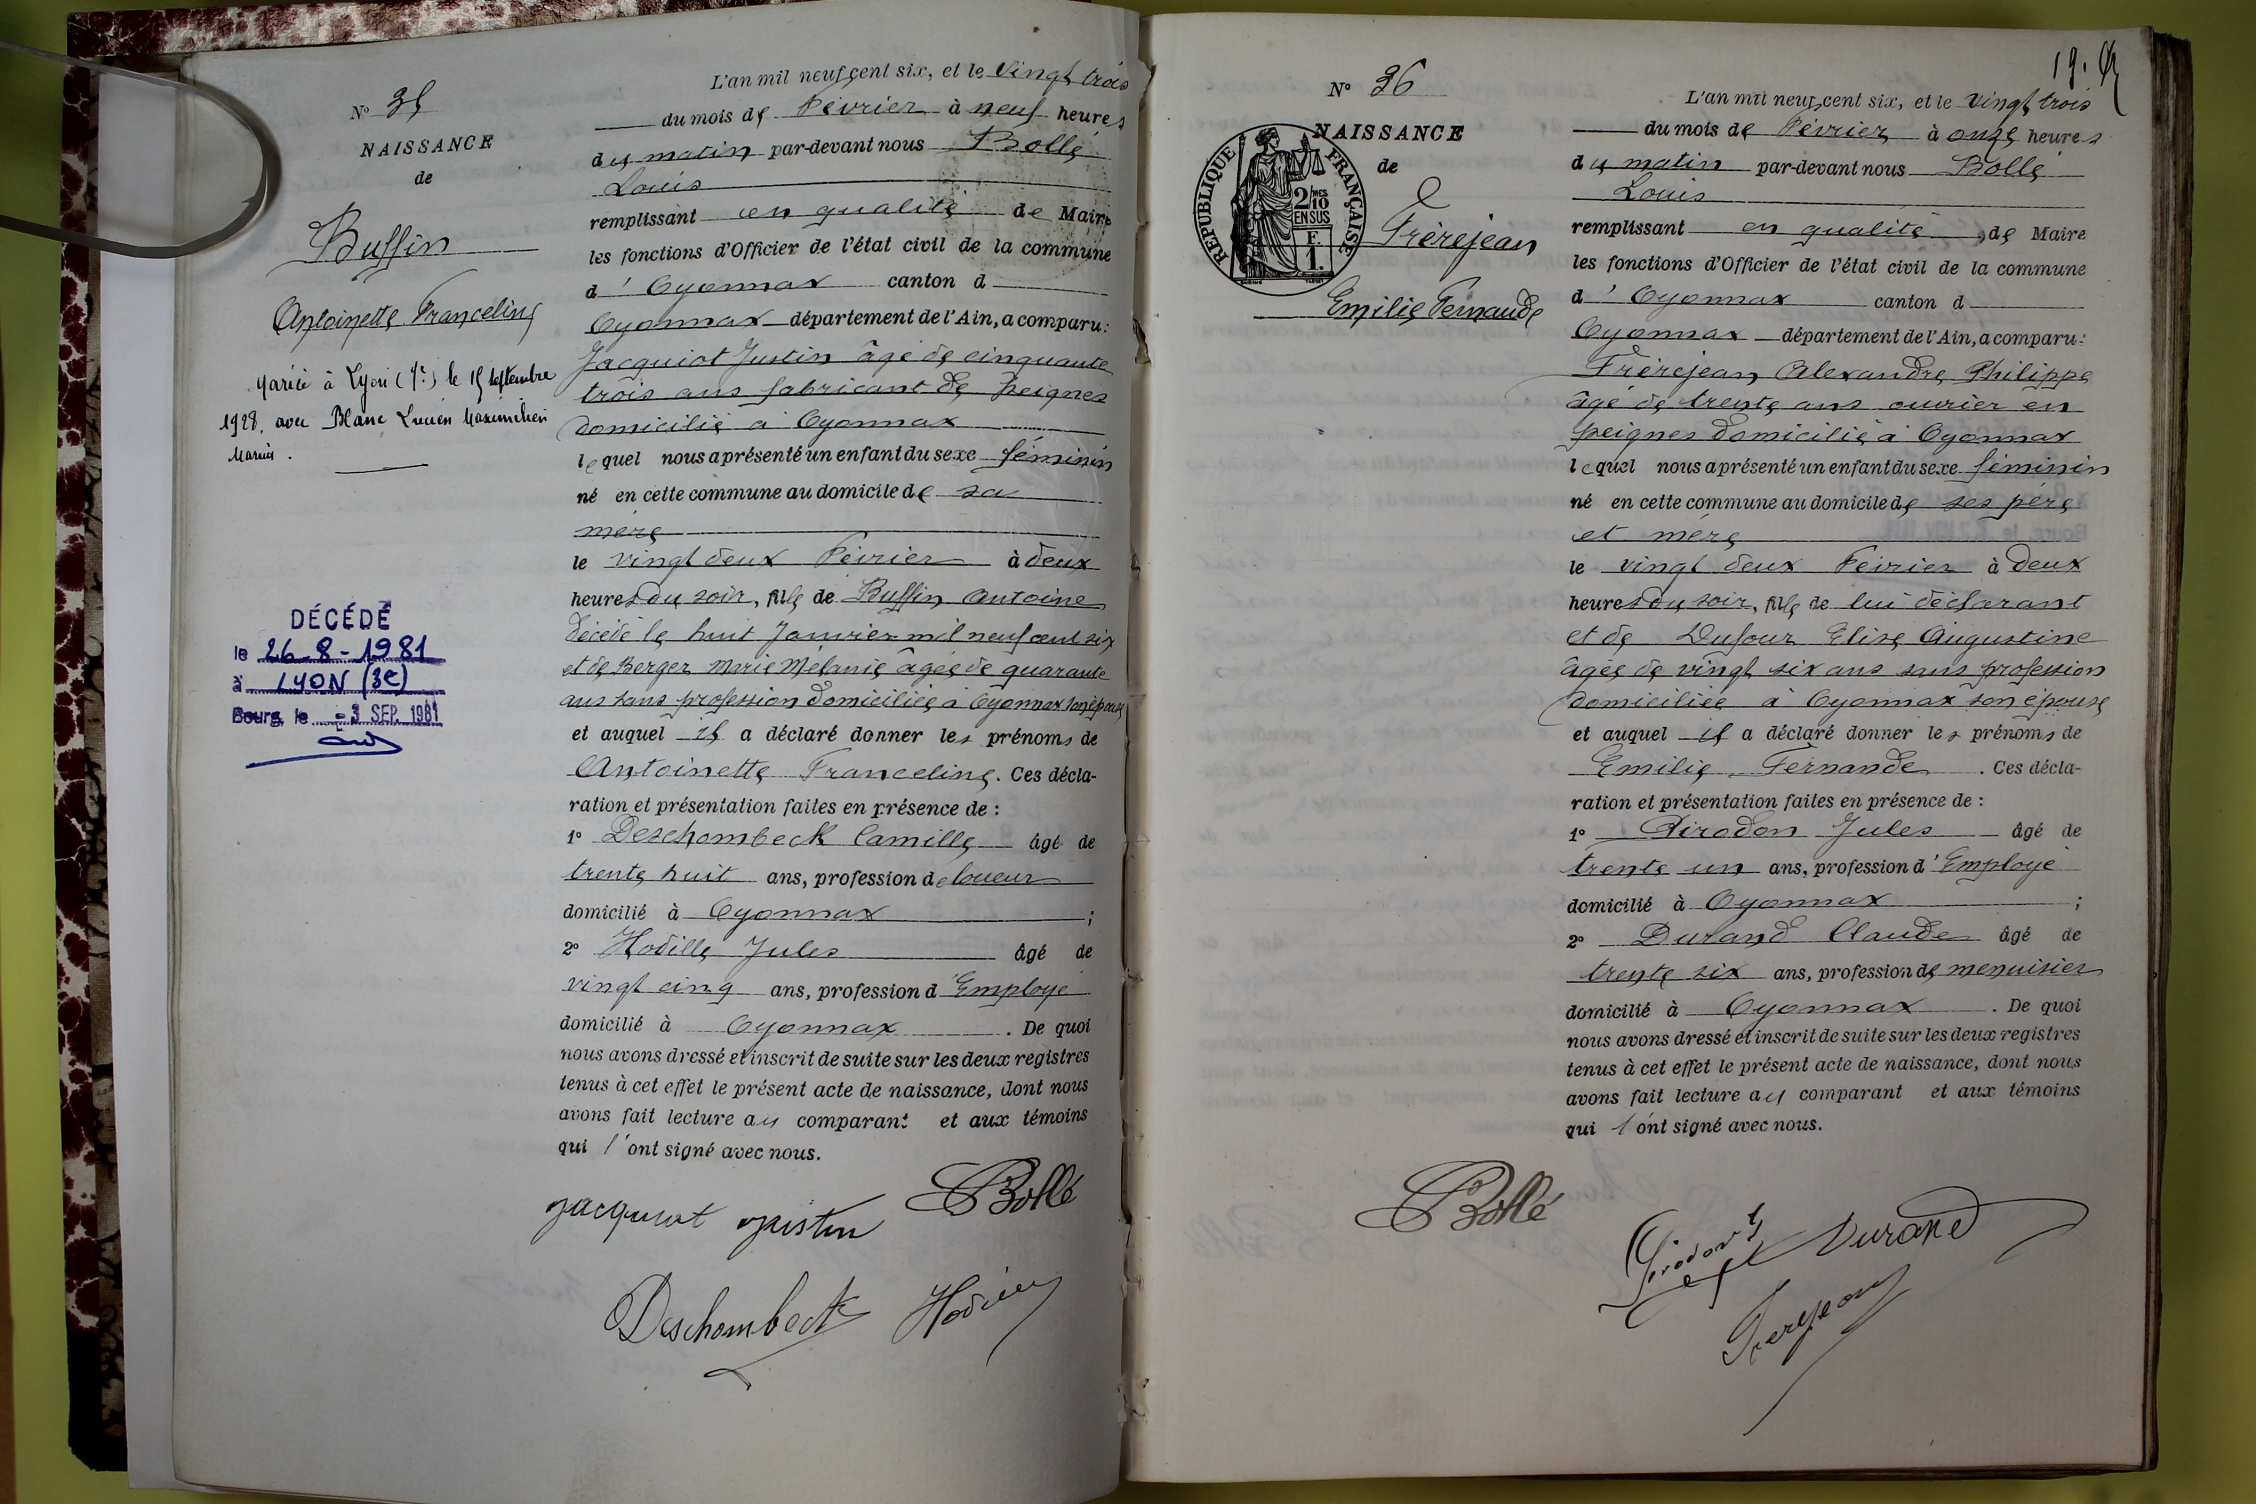 N° 35
NAISSANCE
de
Buffin
Antoinette Franceline
Mariée à Lyon (1r) le 15 septembre
1928, avec Blanc Lucien Maximilien
Marius.
DÉCÉDÉ
le 26-8-1981
à LYON (3e)
Bourg, le -3 SEP. 1981
L'an mil neuf cent six, et le vingt trois
du mois de Février à neuf heures
du matin par-devant nous Bollé
Louis
remplissant en qualité de Maire
les fonctions d'Officier de l'état civil de la commune
d'Oyonnax canton d
Oyonnax département de l'Ain, a comparu:
Jacquiot Justin âgé de cinquante
trois ans fabricant de peignes
domicilié à Oyonnax
lequel nous a présenté un enfant du sexe féminin
né en cette commune au domicile de sa
mère
le vingt deux Février à deux
heures du soir, fille de Buffin Antoine
décédé le huit Janvier mil neuf cent six
et de Berger Marie Mélanie âgée de quarante
ans sans profession domiciliée à Oyonnax son épouse
et auquel il a déclaré donner les prénoms de
Antoinette Franceline. Ces décla-
ration et présentation faites en présence de :
1° Deschombeck Camille âgé de
trente huit ans, profession de loueur
domicilié à Oyonnax ;
2° Hodille Jules âgé de
vingt cinq ans, profession d'Employé
domicilié à Oyonnax . De quoi
nous avons dressé et inscrit de suite sur les deux registres
tenus à cet effet le présent acte de naissance, dont nous
avons fait lecture au comparant et aux témoins
qui l'ont signé avec nous.
Jacquiot Justin Bollé
Deschombeck
19.
N° 36
NAISSANCE
de
RÉPUBLIQUE FRANÇAISE
2/10 MES
EN SUS
F.
1.
Frèrejean
Emilie Fernande
L'an mil neuf cent six, et le vingt trois
du mois de Février à onze heures
du matin par-devant nous Bollé
Louis
remplissant en qualité de Maire
les fonctions d'Officier de l'état civil de la commune
d'Oyonnax canton d
Oyonnax département de l'Ain, a comparu:
Frèrejean Alexandre Philippe
âgé de trente ans ouvrier en
peignes domicilié à Oyonnax
lequel nous a présenté un enfant du sexe féminin
né en cette commune au domicile de ses père
et mère
le vingt deux Février à deux
heures du soir, fille de lui déclarant
et de Dufour Elise Augustine
âgée de vingt six ans sans profession
domiciliée à Oyonnax son épouse
et auquel il a déclaré donner les prénoms de
Emilie Fernande . Ces décla-
ration et présentation faites en présence de :
1° Pirodon Jules âgé de
trente un ans, profession d'Employé
domicilié à Oyonnax ;
2° Durand Claude âgé de
trente six ans, profession de menuisier
domicilié à Oyonnax . De quoi
nous avons dressé et inscrit de suite sur les deux registres
tenus à cet effet le présent acte de naissance, dont nous
avons fait lecture au comparant et aux témoins
qui l'ont signé avec nous.
Bollé
Durand